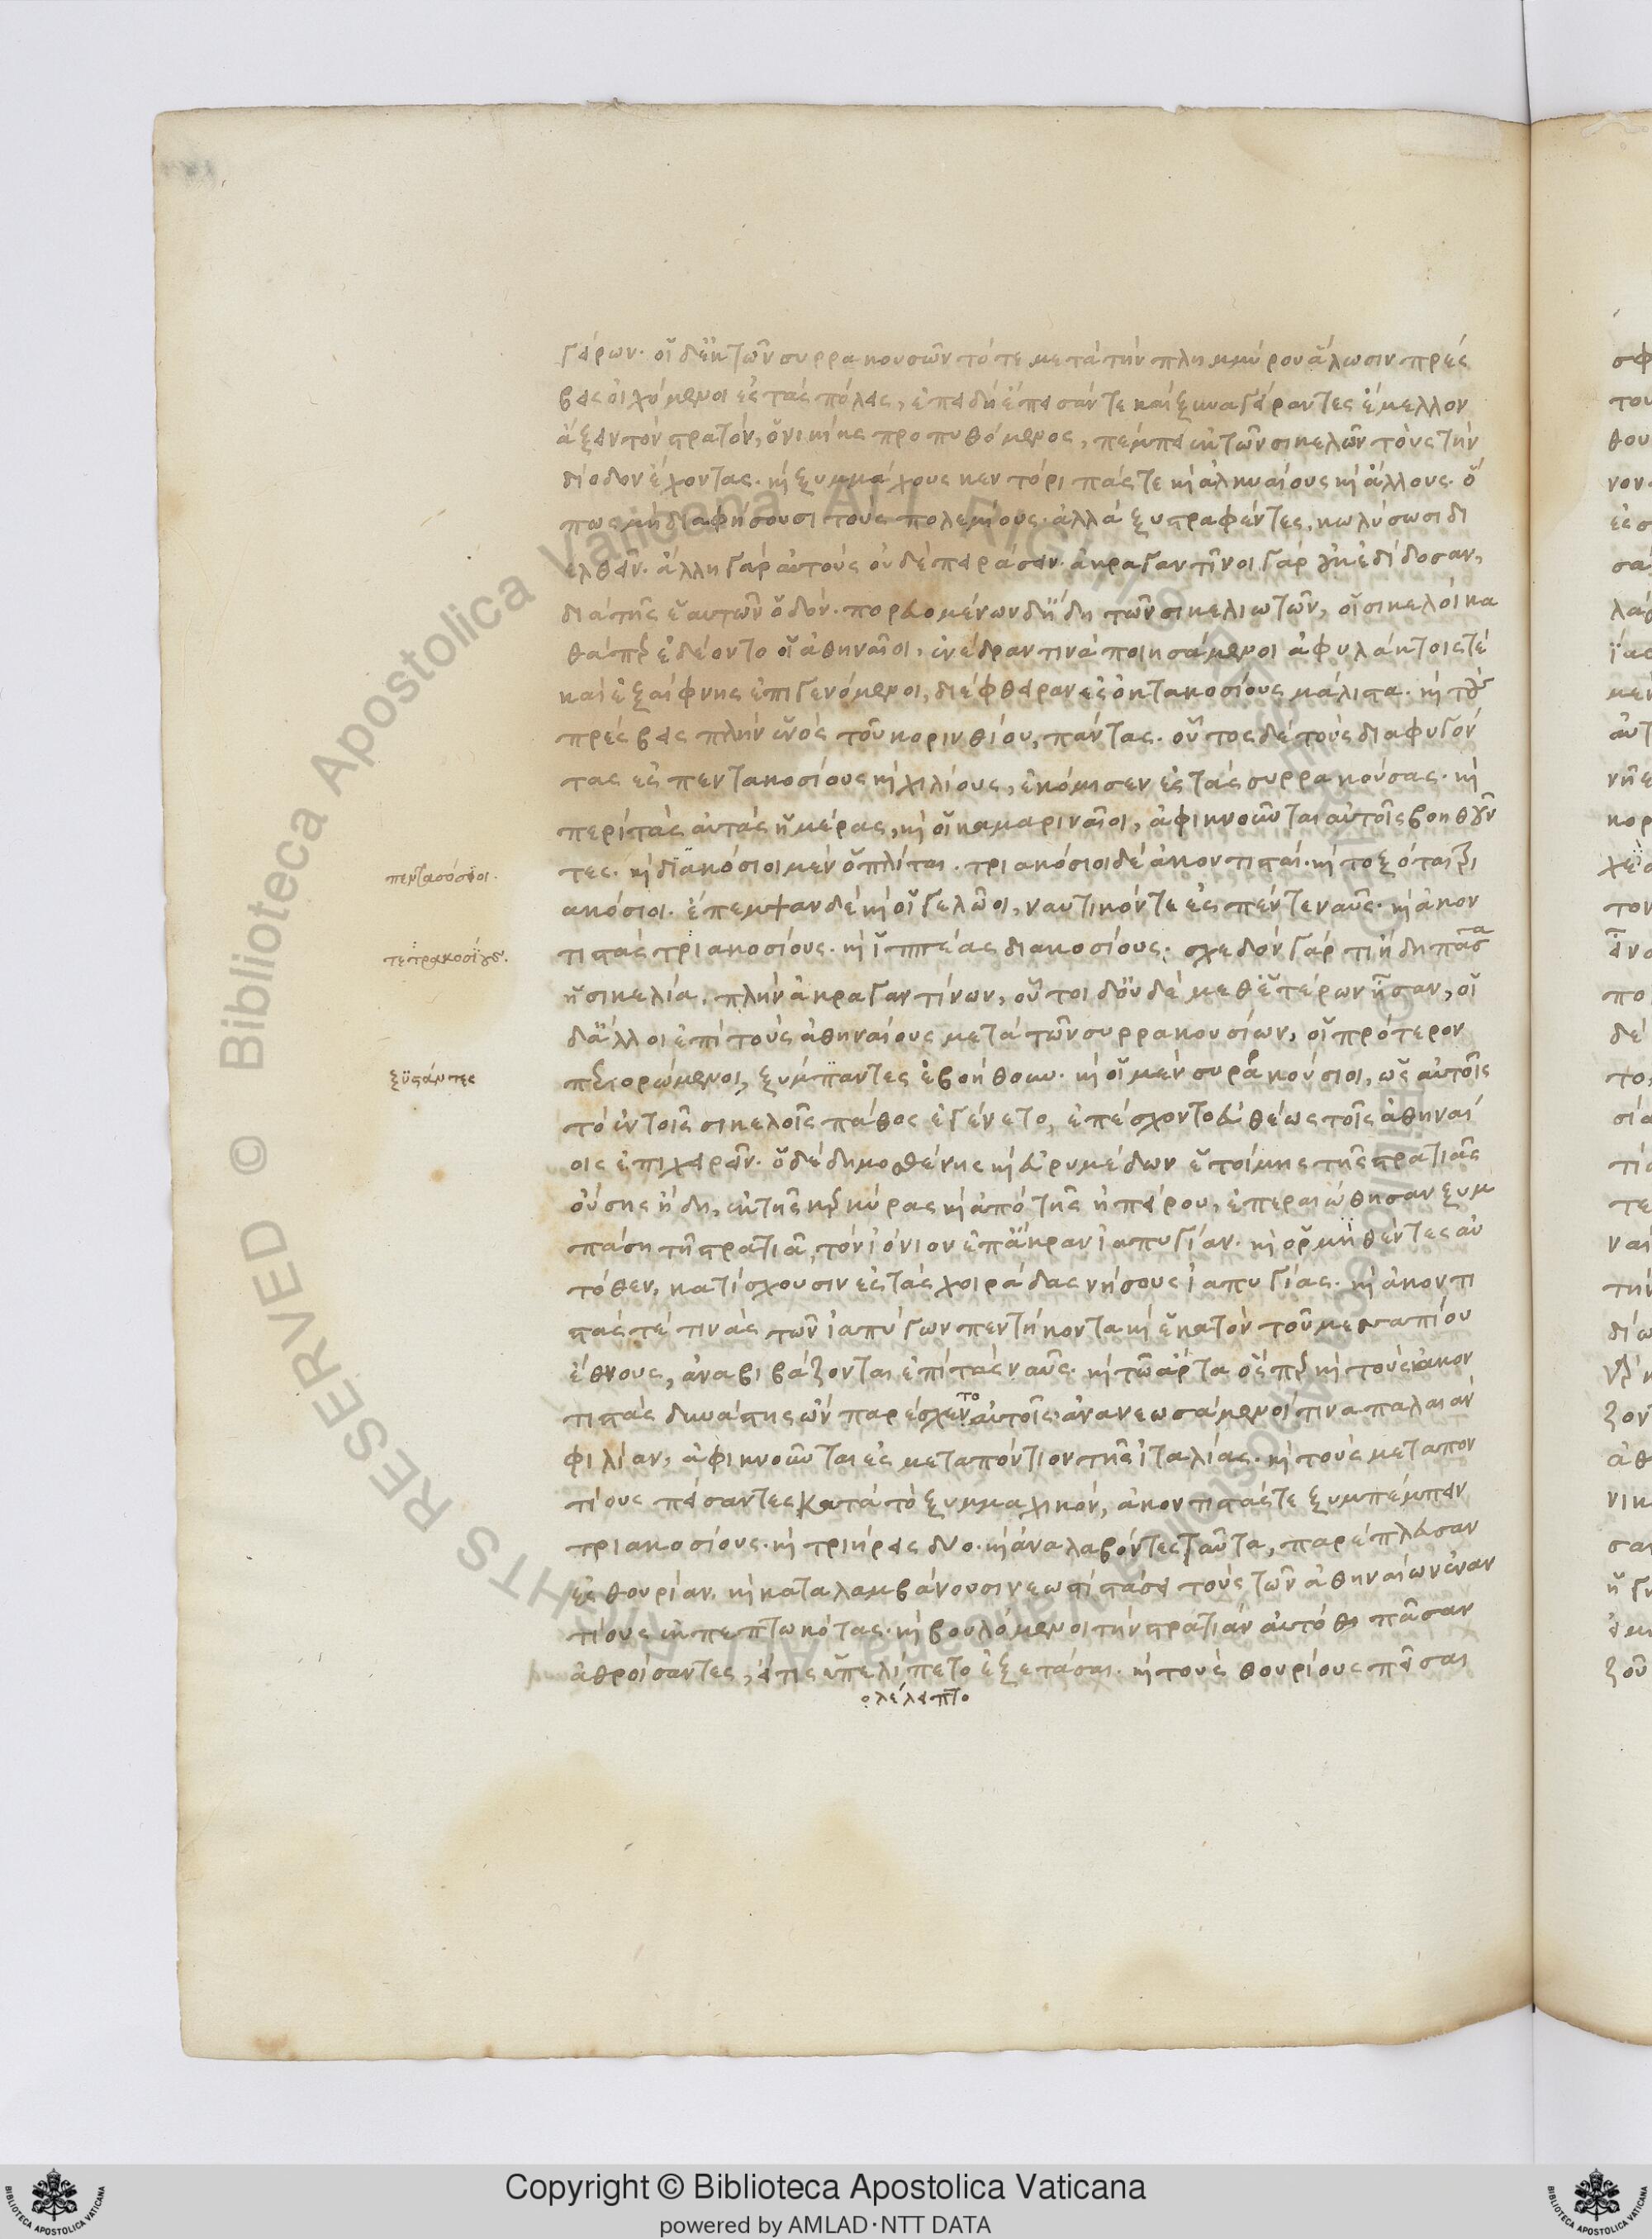 γείρων· οἱ δ' ἐκ τῶν συρρακουσῶν τότε μετὰ τὴν πλημμύρου ἅλωσιν πρέσ
βεις οἰχόμενοι ἐς τὰς πόλεις, ἐπειδὴ ἔπεισάν τε καὶ ξυναγείραντες ἔμελλον
ἄξειν τὸν στρατόν, ὁ νικίης προπυθόμενος, πέμπει ἐκ τῶν σικελῶν τοὺς τὴν
δίοδον ἔχοντας· κ̀ ξυμμάχους κεντόριπάς τε κ̀ ἀλικυαίους κ̀ ἄλλους· ὅ
πως μὴ διαφήσουσι τοὺς πολεμίους· ἀλλὰ ξυστραφέντες, κωλύσωσι δι
ελθεῖν· ἄλλη γὰρ αὐτοὺς οὐδὲ πειράσειν· ἀκραγαντῖνοι γὰρ οὐκ ἐδίδοσαν,
διὰ τῆς ἑαυτῶν ὁδόν· πορευομένων δ' ἤδη τῶν σικελιωτῶν, οἱ σικελοὶ κα
θάπερ ἐδέοντο οἱ ἀθηναῖοι, ἐνέδραν τινὰ ποιησάμενοι ἀφυλάκτοις τὲ
καὶ ἐξαίφνης ἐπιγενόμενοι, διέφθειραν ἐς ὀκτακοσίους μάλιστα· κ̀ τοὺς
πρέσβεις πλὴν ἑνὸς τοῦ κορινθίου, πάντας· οὗτος δὲ τοὺς διαφυγόν
τας ἐς πεντακοσίους κ̀ χιλίους, ἐκόμισεν ἐς τὰς συρρακούσας· κ̀
περὶ τὰς αὐτὰς ἡμέρας, κ̀ οἱ καμαριναῖοι, ἀφικνοῦνται αὐτοῖς βοηθοῦν
τες· κ̀ διακόσιοι μὲν ὁπλῖται· τριακόσιοι δὲ ἀκοντισταί· κ̀ τοξόται τρι
ακόσιοι· ἔπεμψαν δὲ κ̀ οἱ γελῶοι, ναυτικόν τε ἐς πέντε ναῦς· κ̀ ἀκον
τιστὰς τριακοσίους· κ̀ ἱππέας διακοσίους· σχεδὸν γάρ τι ἤδη πᾶσα
ἡ σικελία, πλὴν ἀκραγαντίνων, οὗτοι δ' οὐδὲ μεθ' ἑτέρων ἦσαν, οἱ
δ' ἄλλοι ἐπὶ τοὺς ἀθηναίους μετὰ τῶν συρρακουσίων, οἱ πρότερον
περιορώμενοι, ξύμπαντες ἐβοήθουν· κ̀ οἱ μὲν συρακούσιοι, ὡς αὐτοῖς
τὸ ἐν τοῖς σικελοῖς πάθος ἐγένετο, ἐπέσχοντο εὐθέως τοῖς ἀθηναί
οις ἐπιχειρεῖν· ὁ δὲ δημοσθένης κ̀ εὐρυμέδων ἑτοίμης τῆς στρατιᾶς
οὔσης ἤδη, ἐκ τῆς κερκύρας κ̀ ἀπὸ τῆς ἠπείρου, ἐπεραιώθησαν ξυμ
πάση τῆ στρατιᾶ, τὸν ἰόνιον ἐπ' ἄκραν ἰαπυγίαν· κ̀ ὁρμηθέντες αὐ
τόθεν, κατίσχουσιν ἐς τὰς χοιράδας νήσους ἰαπυγίας· κ̀ ἀκοντι
στάς τέ τινὰς τῶν ἰαπύγων πεντήκοντα κ̀ ἑκατὸν τοῦ μεσσαπίου
ἔθνους, ἀναβιβάζονται ἐπὶ τὰς ναῦς· κ̀ τῶ ἄρτα ὅσπερ κ̀ τοὺς ἀκον
τιστὰς δυνάστης ὢν παρέσχετο αὐτοῖς· ἀνανεωσάμενοί τινα παλαιὰν
φιλίαν, ἀφικνοῦνται ἐς μεταπόντιον τῆς ἰταλίας· κ̀ τοὺς μεταπον
τίους πείσαντες κατὰ τὸ ξυμμαχικόν, ἀκοντιστάς τε ξυμπέμπειν
τριακοσίους· κ̀ τριήρεις δύο· κ̀ ἀναλαβόντες ταῦτα, παρέπλευσαν
ἐς θουρίαν, κ̀ καταλαμβάνουσι νεωστὶ στάσει τοὺς τῶν ἀθηναίων ἐναν
τίους ἐκπεπτωκότας· κ̀ βουλόμενοι τὴν στρατιὰν αὐτόθι πᾶσαν
ἀθροίσαντες, εἴ τις ὑπελίπετο ἐξετάσαι· κ̀ τοὺς θουρίους πεῖσαι
ολέλειπτο
πεντακόσιοι·
τετρακοσίους·
ξυστάντες
Copyright © Biblioteca Apostolica Vaticana
powered by AMLAD·NTT DATA